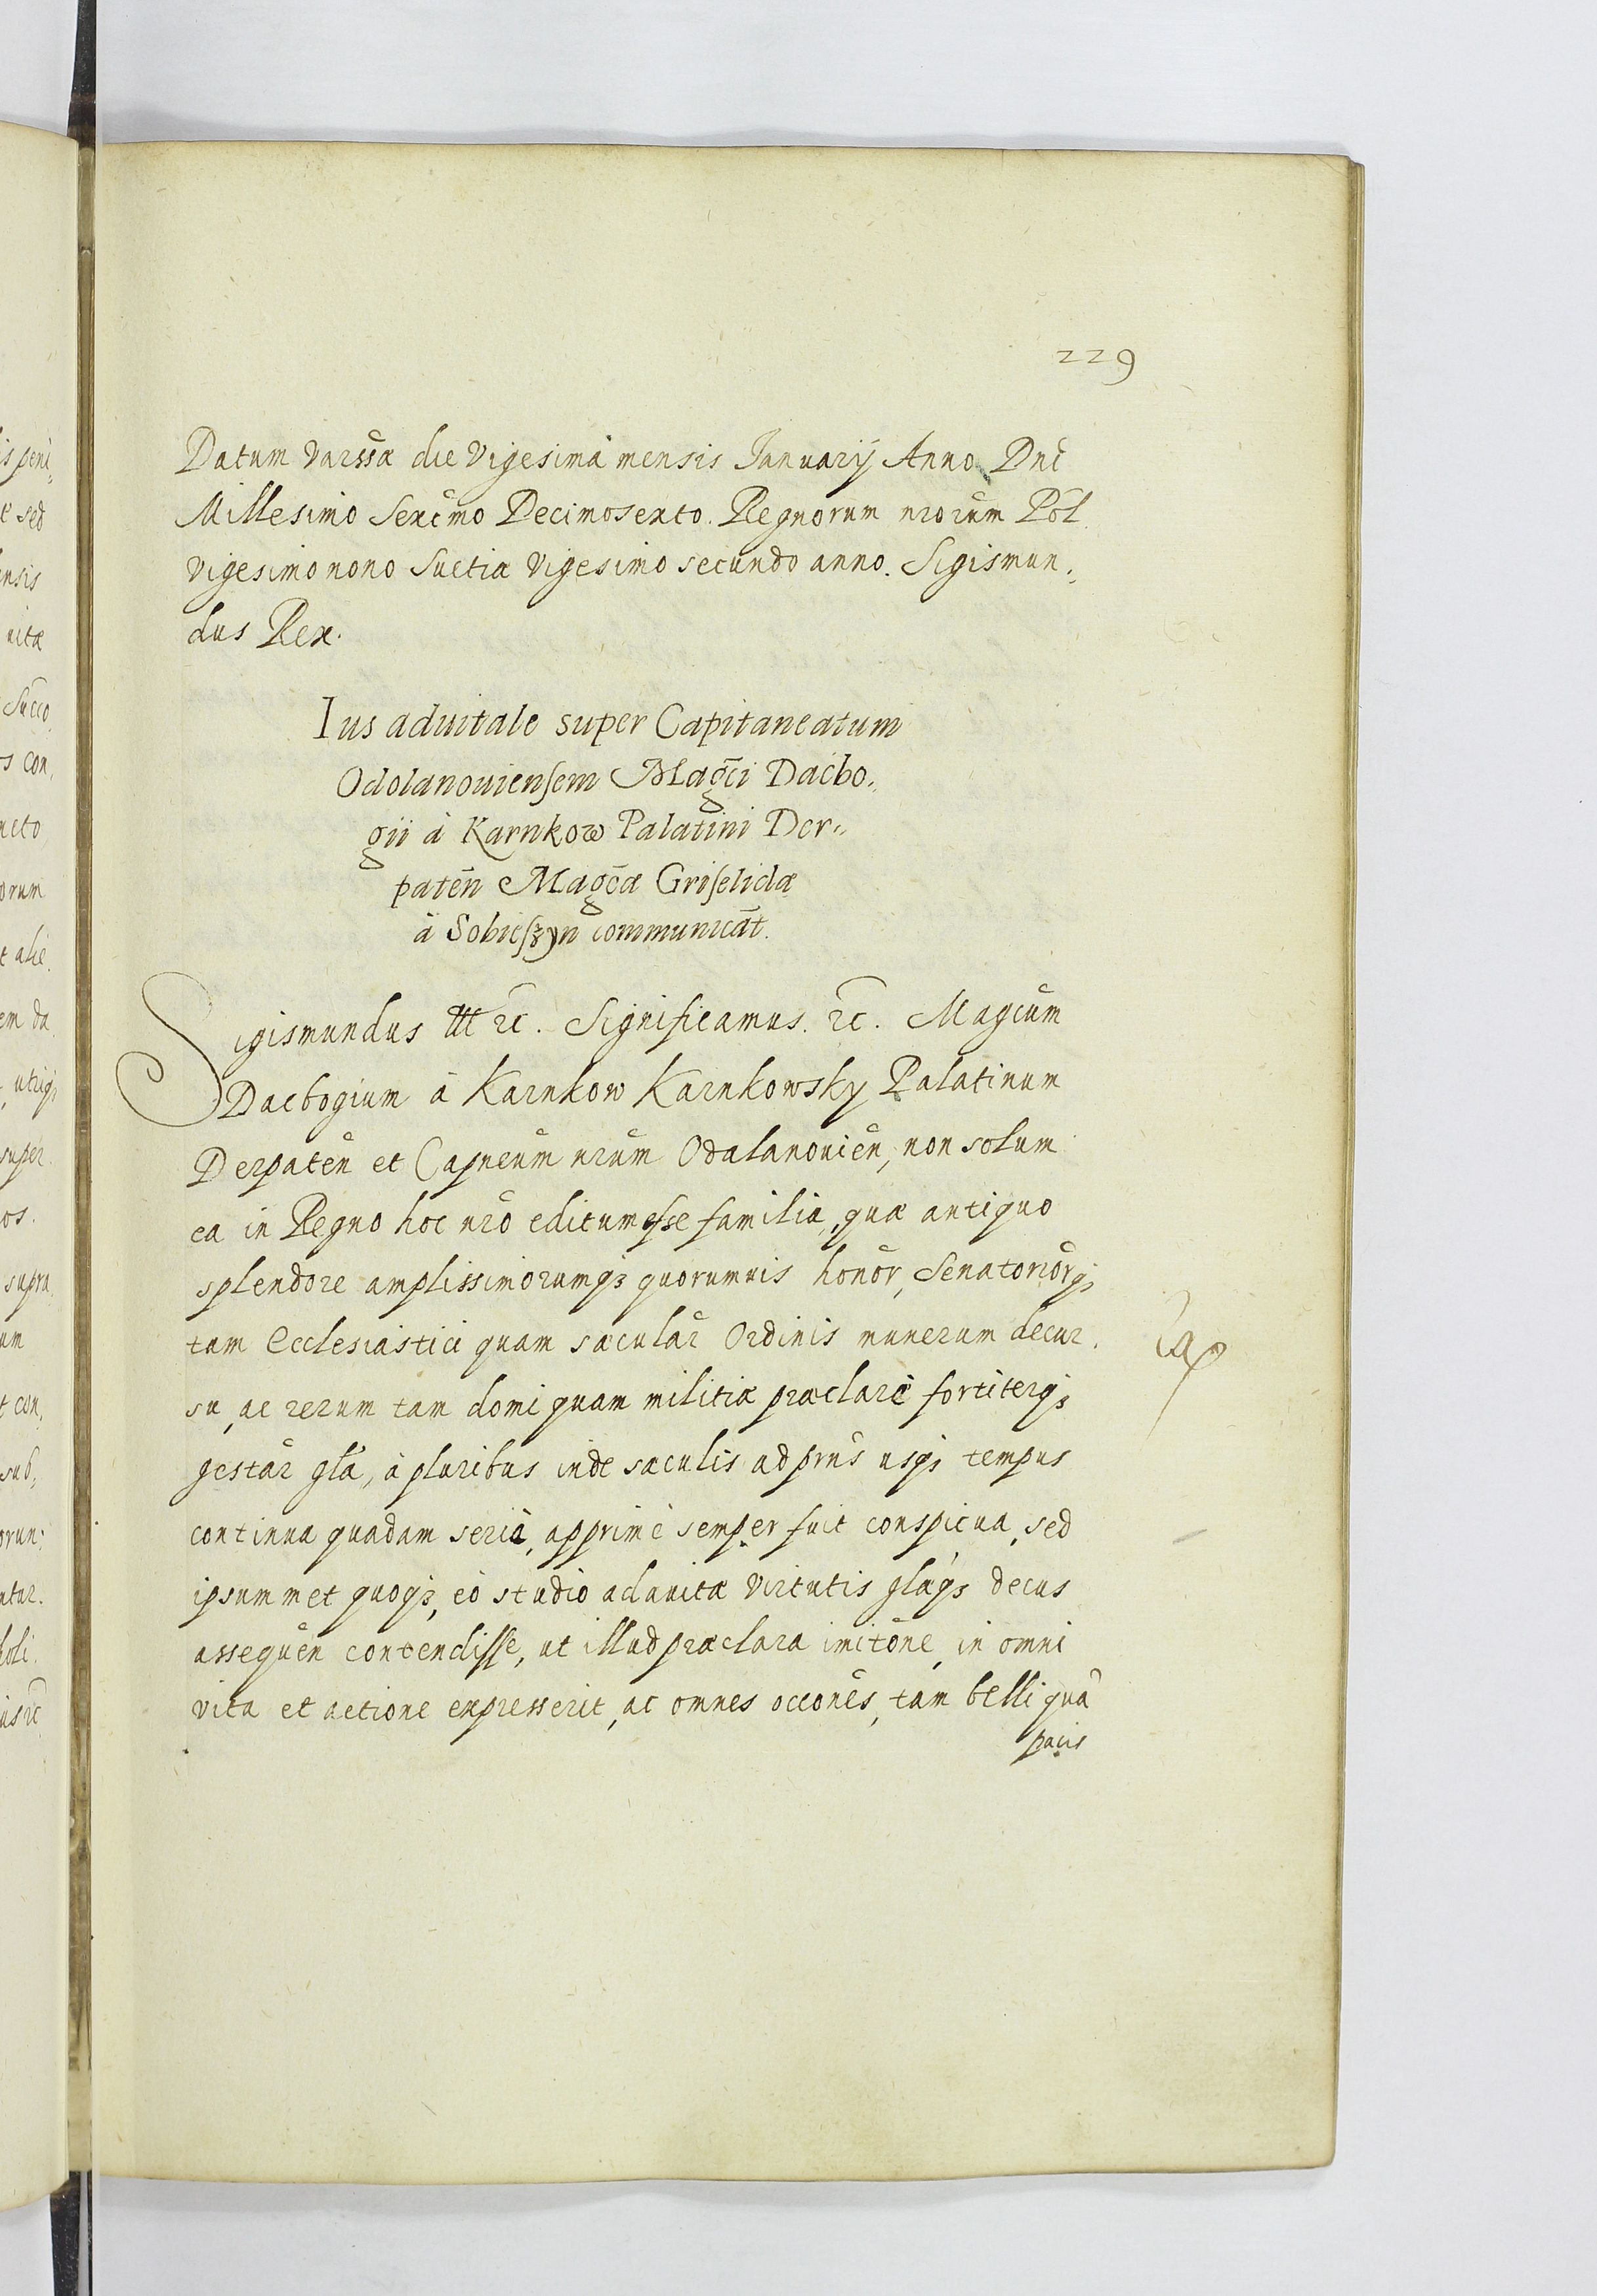 229
Datum Varssæ die Vigesima mensis Ianuarij Anno Dni
Millesimo Sexcmo Decimosexto. Regnorum nrorum Pol.
Vigesimo nono Suetiæ Vigesimo secundo anno. Sigismun„
dus Rex.
Ius aduitale super Capitaneatum
Odolanouiensem Magci Dacbo„
gii à Karnkow Palatini Der„
paten̄ Magcæ Griselidæ
à Sobieszyn communicāt.
Sigismundus III etc. Significamus. etc. Magcum
Dacbogium à Karnkow Karnkowsky Palatinum
Derpaten̄ et Capneum nrum Odalanouien̄, non solum
ea in Regno hoc nro editum esse familia, quæ antiquo
splendore amplissimorumq3 quorumuis honor̄, Senatorior̄q3
tam Ecclesiastici quam sæcular̄ Ordinis munerum decur„
su, ac rerum tam domi quam militiæ præclarè fortiterq3
gestar̄ gla, à pluribus inde sæculis ad prns usq3 tempus
continua quadam serie, apprimè semper fuit conspicua, sed
ipsummet quoq3, eò studio adauitæ Virtutis glæq3 decus
assequen̄ contendisse, ut illud præclara imitone, in omni
vita et actione expresserit, ac omnes occones, tam belli quā
pacis